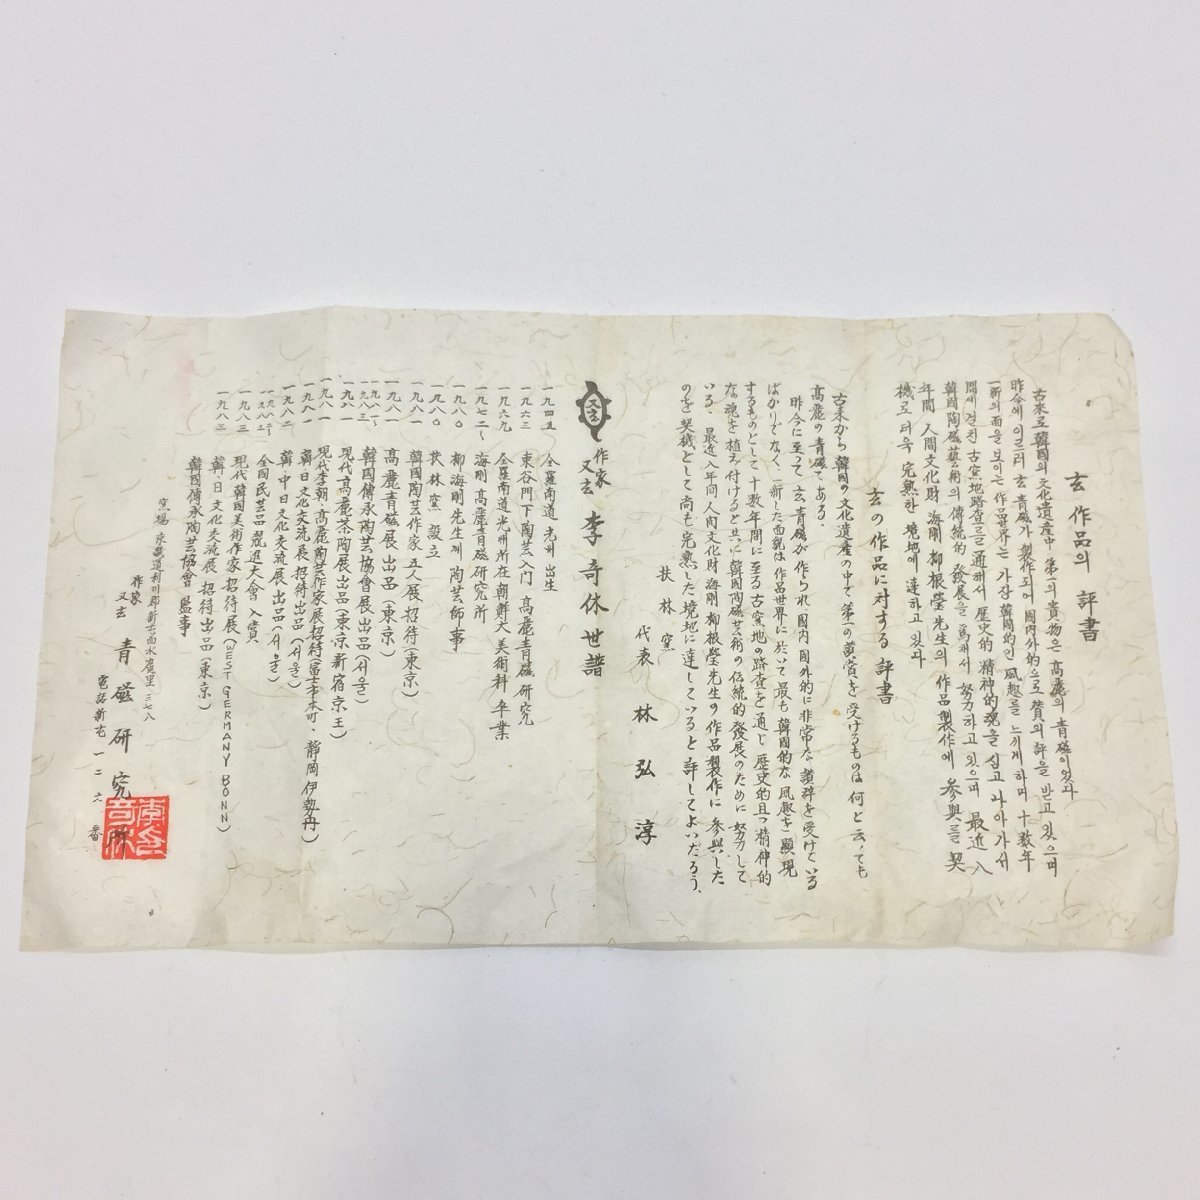 玄 作品의 評書
古來로 韓國의 文化遺産中 第一의 貴物은 高麗의 青磁이었다
昨今에 이르러 玄 青磁가 製作되어 國内外的으로 贊의 評을 받고 있으며
一新의 面을 보이는 作品世界는 가장 韓國的인 風趣를 느끼게 하며 十數年
間에 걸친 古窯地踏査를 通해서 歷史的 精神的 魂을 심고 나아가서
韓國陶磁藝術의 傳統的 發展을 爲해서 努力하고 있으며 最近 八
年間 人間文化財 海剛 柳根瀅先生의 作品製作에 參與를 契
機로 더욱 完熟한 境地에 達하고 있다
玄の作品に対する評書
古来から韓國の文化遺産の中で第一の賞を受けるものは何と云っても
高麗の青磁である、
昨今に至って玄青磁が作られ、国内国外的に非常な讃辞を受けている
ばかりでなく、一新した面貌は作品世界に於いて最も韓國的な風趣を顕現
するものとして十数年間に至る古窯地の踏査を通じ歴史的且つ精神的
な魂を植え付けると共に韓國陶磁芸術の伝統的発展のために努力して
いる、最近八年間人間文化財海剛柳根瀅先生の作品製作に參與した
のを契機として尚も完熟した境地に達していると評してよいだろう、
扶林窯
代表 林弘淳
又玄
作家 又玄 李奇休世譜
一九四五 全羅南道 光州 出生
一九六三 東谷門下陶芸入門 高麗青磁研究
一九六九 全羅南道光州所在朝鮮大美術科卒業
一九七二~ 海剛高麗青磁研究所
柳海剛先生께 陶芸師事
一九八〇 扶林窯設立
一九八〇 韓國陶芸作家五人展招待(東京)
一九八一 高麗青磁展出品(東京)
一九八一~一九八三 韓國傳承陶芸協會展出品(서울)
一九八一 現代高麗茶陶展出品(東京新宿京王)
一九八一 現代李朝、高麗陶芸作家展招待(富士市本町、静岡伊勢丹)
一九八一 韓日文化交流展招待出品(서울)
一九八二 韓中日文化交流展出品(서울)
一九八二~一九八三 全国民芸品競進大會入賞
一九八三 現代韓國美術作家招待展(WEST GERMANY BONN)
一九八三 韓日文化交流展招待出品(東京)
韓國傳承陶芸協會 監事
窯場 京畿道利川郡新屯面水廣里三七八
作家 又玄 青磁研究所
電話新屯 一二六番